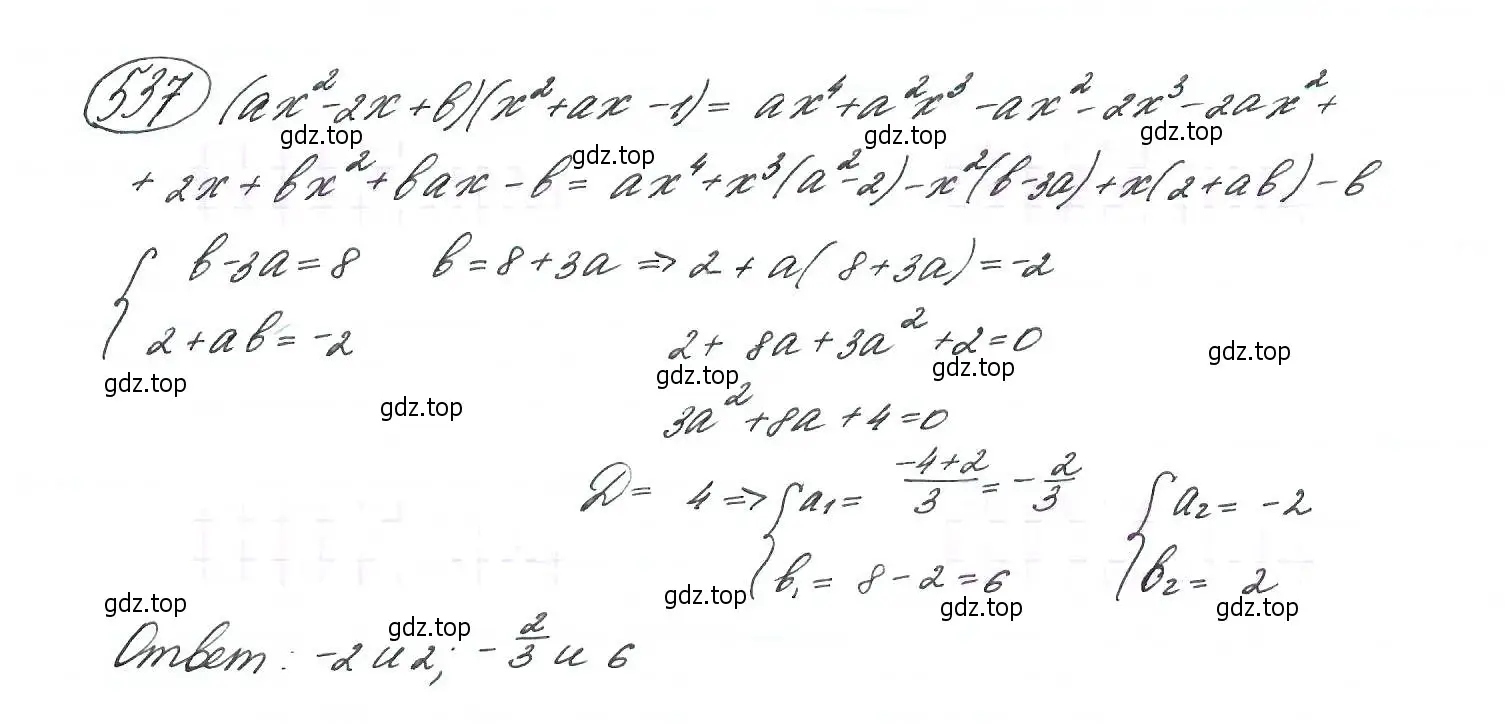 537 (ax²-2x+b)(x²+ax-1)= ax⁴+a²x³-ax²-2x³-2ax²+
gdz.top gdz.top gdz.top gdz.top
+2x+bx²+bax-b= ax⁴+x³(a²-2)-x²(b-3a)+x(2+ab)-b
{ b-3a=8 b=8+3a ⇒ 2+a(8+3a)=-2
2+ab=-2 2+8a+3a²+2=0
gdz.top gdz.top gdz.top gdz.top gdz.top
3a²+8a+4=0
D= 4 ⇒ { a₁= (-4+2)/3 = -2/3 { a₂= -2
b₁= 8-2=6 b₂= 2
gdz.top gdz.top gdz.top gdz.top
Ответ: -2 и 2; -2/3 и 6
gdz.top